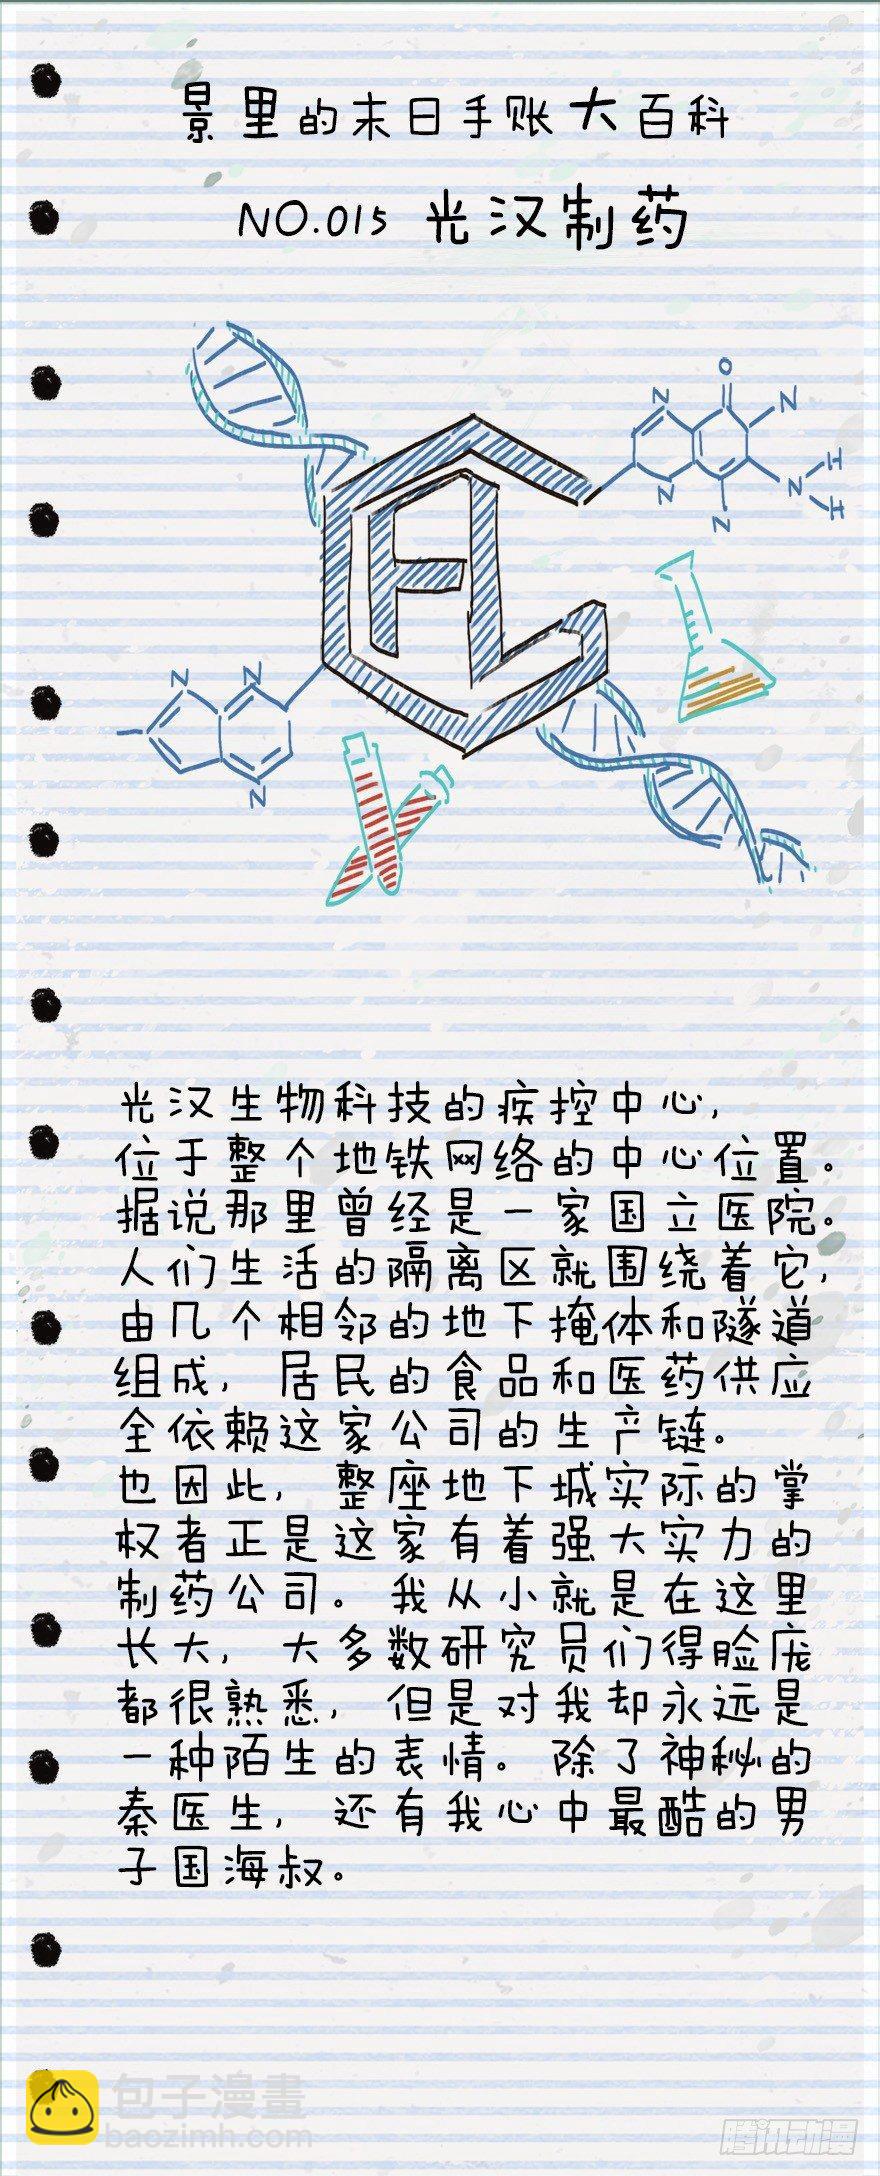 景里的末日手账大百科
NO.015 光汉制药
O
N
N
N
N
N
H
H
N
N
N
N
光汉生物科技的疾控中心，
位于整个地铁网络的中心位置。
据说那里曾经是一家国立医院。
人们生活的隔离区就围绕着它，
由几个相邻的地下掩体和隧道
组成，居民的食品和医药供应
全依赖这家公司的生产链。
也因此，整座地下城实际的掌
权者正是这家有着强大实力的
制药公司。我从小就是在这里
长大，大多数研究员们得脸庞
都很熟悉，但是对我却永远是
一种陌生的表情。除了神秘的
秦医生，还有我心中最酷的男
子国海叔。
包子漫畫
baozimh.com
腾讯动漫